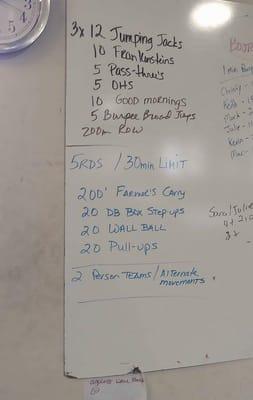 3x 12 Jumping Jacks
10 Frankinsteins
5 Pass-thru's
5 OHS
10 GOOD mornings
5 Burpee Broad Jumps
200m Row
5RDS / 30min LIMIT
200' FARMER'S CARRY
20 DB BOX STEP-UPS
20 WALL BALL
20 PULL-UPS
2 PERSON TEAMS / ALTERNATE
movements
1 min
Christy -
Mark -
Julie -
Kevin -
Sara/Julie